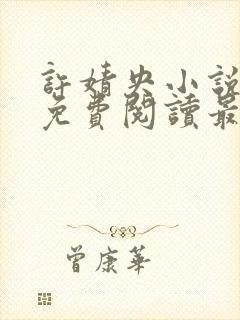 許婧央小說
免費閱讀最
曾康華